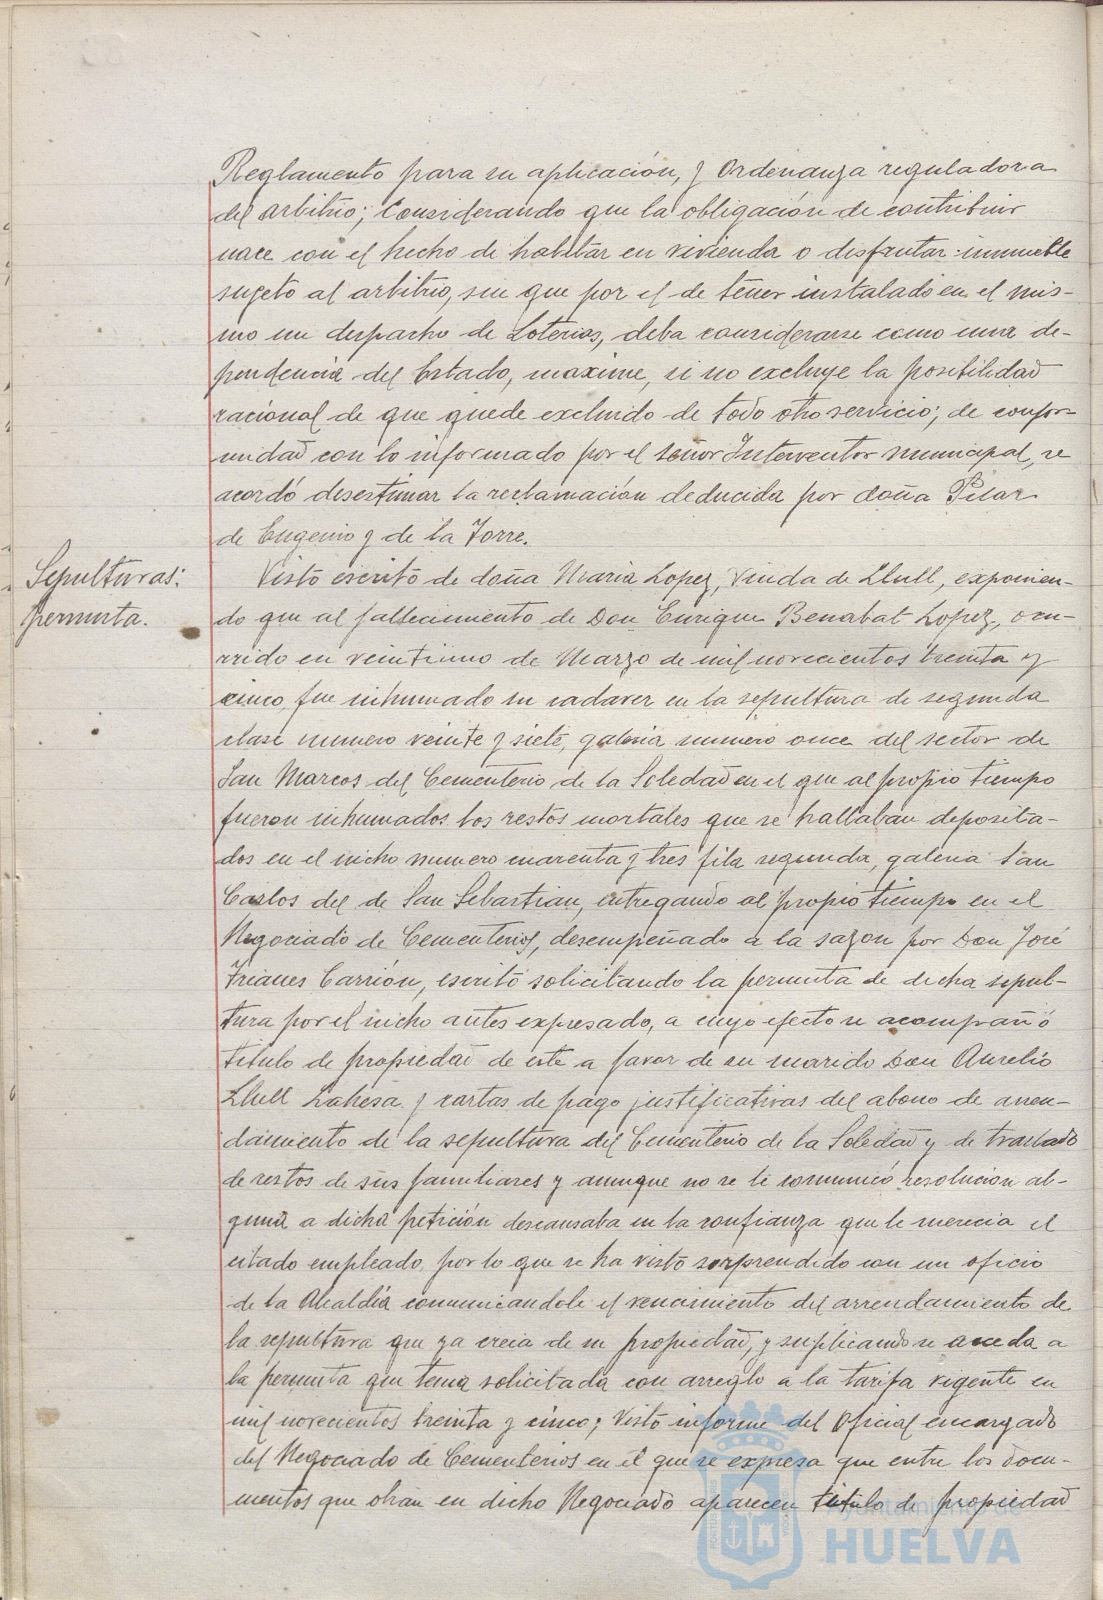 Reglamento para su aplicación, y Ordenanza reguladora
del arbitrio; Considerando que la obligación de contribuir
nace con el hecho de habitar en vivienda o disfrutar inmueble
sugeto al arbitrio, sin que por el de tener instalado en el mis-
mo un despacho de Loterias, deba considerarse como una de-
pendencia del Estado, maxime, si no excluye la posibilidad
racional de que quede excluido de todo otro servicio; de confor-
midad con lo informado por el señor Interventor municipal, se
acordó desestimar la reclamación deducida por doña Pilar
de Eugenio y de la Torre.
Sepulturas:
permuta.
Visto escrito de doña Maria Lopez, Viuda de Llull, exponien-
do que al fallecimiento de Don Enrique Benabat Lopez, ocu-
rrido en veintiuno de Marzo de mil novecientos treinta y
cinco, fue inhumado su cadaver en la sepultura de segunda
clase numero veinte y siete, galeria numero once del sector de
San Marcos del Cementerio de la Soledad en el que al propio tiempo
fueron inhumados los restos mortales que se hallaban deposita-
dos en el nicho numero cuarenta y tres fila segunda, galeria San
Carlos del de San Sebastian, entregando al propio tiempo en el
Negociado de Cementerios, desempeñado a la sazon por Don José
Frianes Carrión, escrito solicitando la permuta de dicha sepul-
tura por el nicho antes expresado, a cuyo efecto se acompañó
titulo de propiedad de este a favor de su marido Don Aurelio
Llull y cartas de pago justificativas del abono de arren-
damiento de la sepultura del Cementerio de la Soledad y de traslado
de restos de sus familiares y aunque no se le comunicó resolucion al-
guna a dicha petición descansaba en la confianza que le merecia el
citado empleado, por lo que se ha visto sorprendido con un oficio
de la Alcaldía comunicandole el vencimiento del arrendamiento de
la sepultura que ya creia de su propiedad, y suplicando se acceda a
la permuta que tenia solicitada con arreglo a la tarifa vigente en
mil novecientos treinta y cinco; Visto informe del Oficial encargado
del Negociado de Cementerios en el que se expresa que entre los docu-
mentos que obran en dicho Negociado aparecen titulo de propiedad
Ayuntamiento de
HUELVA